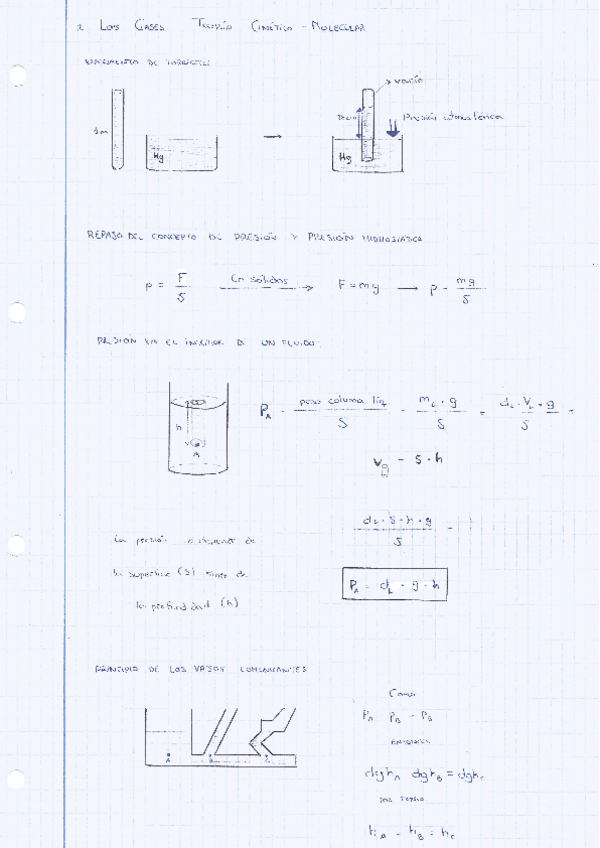 2 Los Gases Teoría Cinético - Molecular
vacío
Presión atmosférica
1m
Hg
Hg
REPASO DEL CONCEPTO DE PRESIÓN Y PRESIÓN HIDROSTÁTICA
p = F / S En sólidos F = mg p = mg / S
PRESIÓN EN EL INTERIOR DE UN FLUIDO:
h
A
P_A = peso columna líq / S = m_L · g / S = d_L · V_L · g / S =
= S · h
d_L · S · h · g / S =
La presión depende de
la superficie (S) sino de
la profundidad (h)
P_A = d_L · g · h
PRINCIPIO DE LOS VASOS COMUNICANTES
Como
P_A P_B = P_B
entonces
dgh_A dgh_B = dgh_C
por tanto
h_A = h_B = h_C
A B C